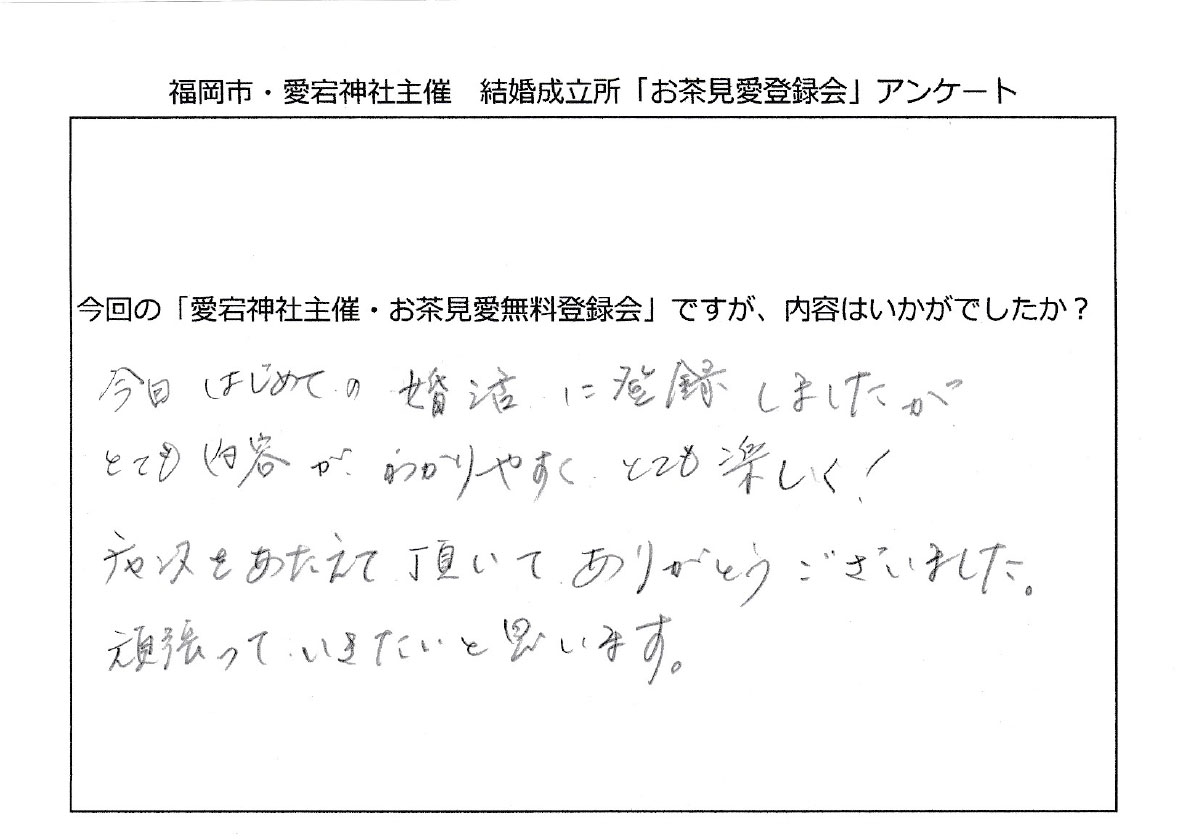 福岡市・愛宕神社主催　結婚成立所「お茶見愛登録会」アンケート
今回の「愛宕神社主催・お茶見愛無料登録会」ですが、内容はいかがでしたか？
今日はじめての婚活に登録しましたが
とても内容がわかりやすくとても楽しく！
チャンスをあたえて頂いてありがとうございました。
頑張っていきたいと思います。